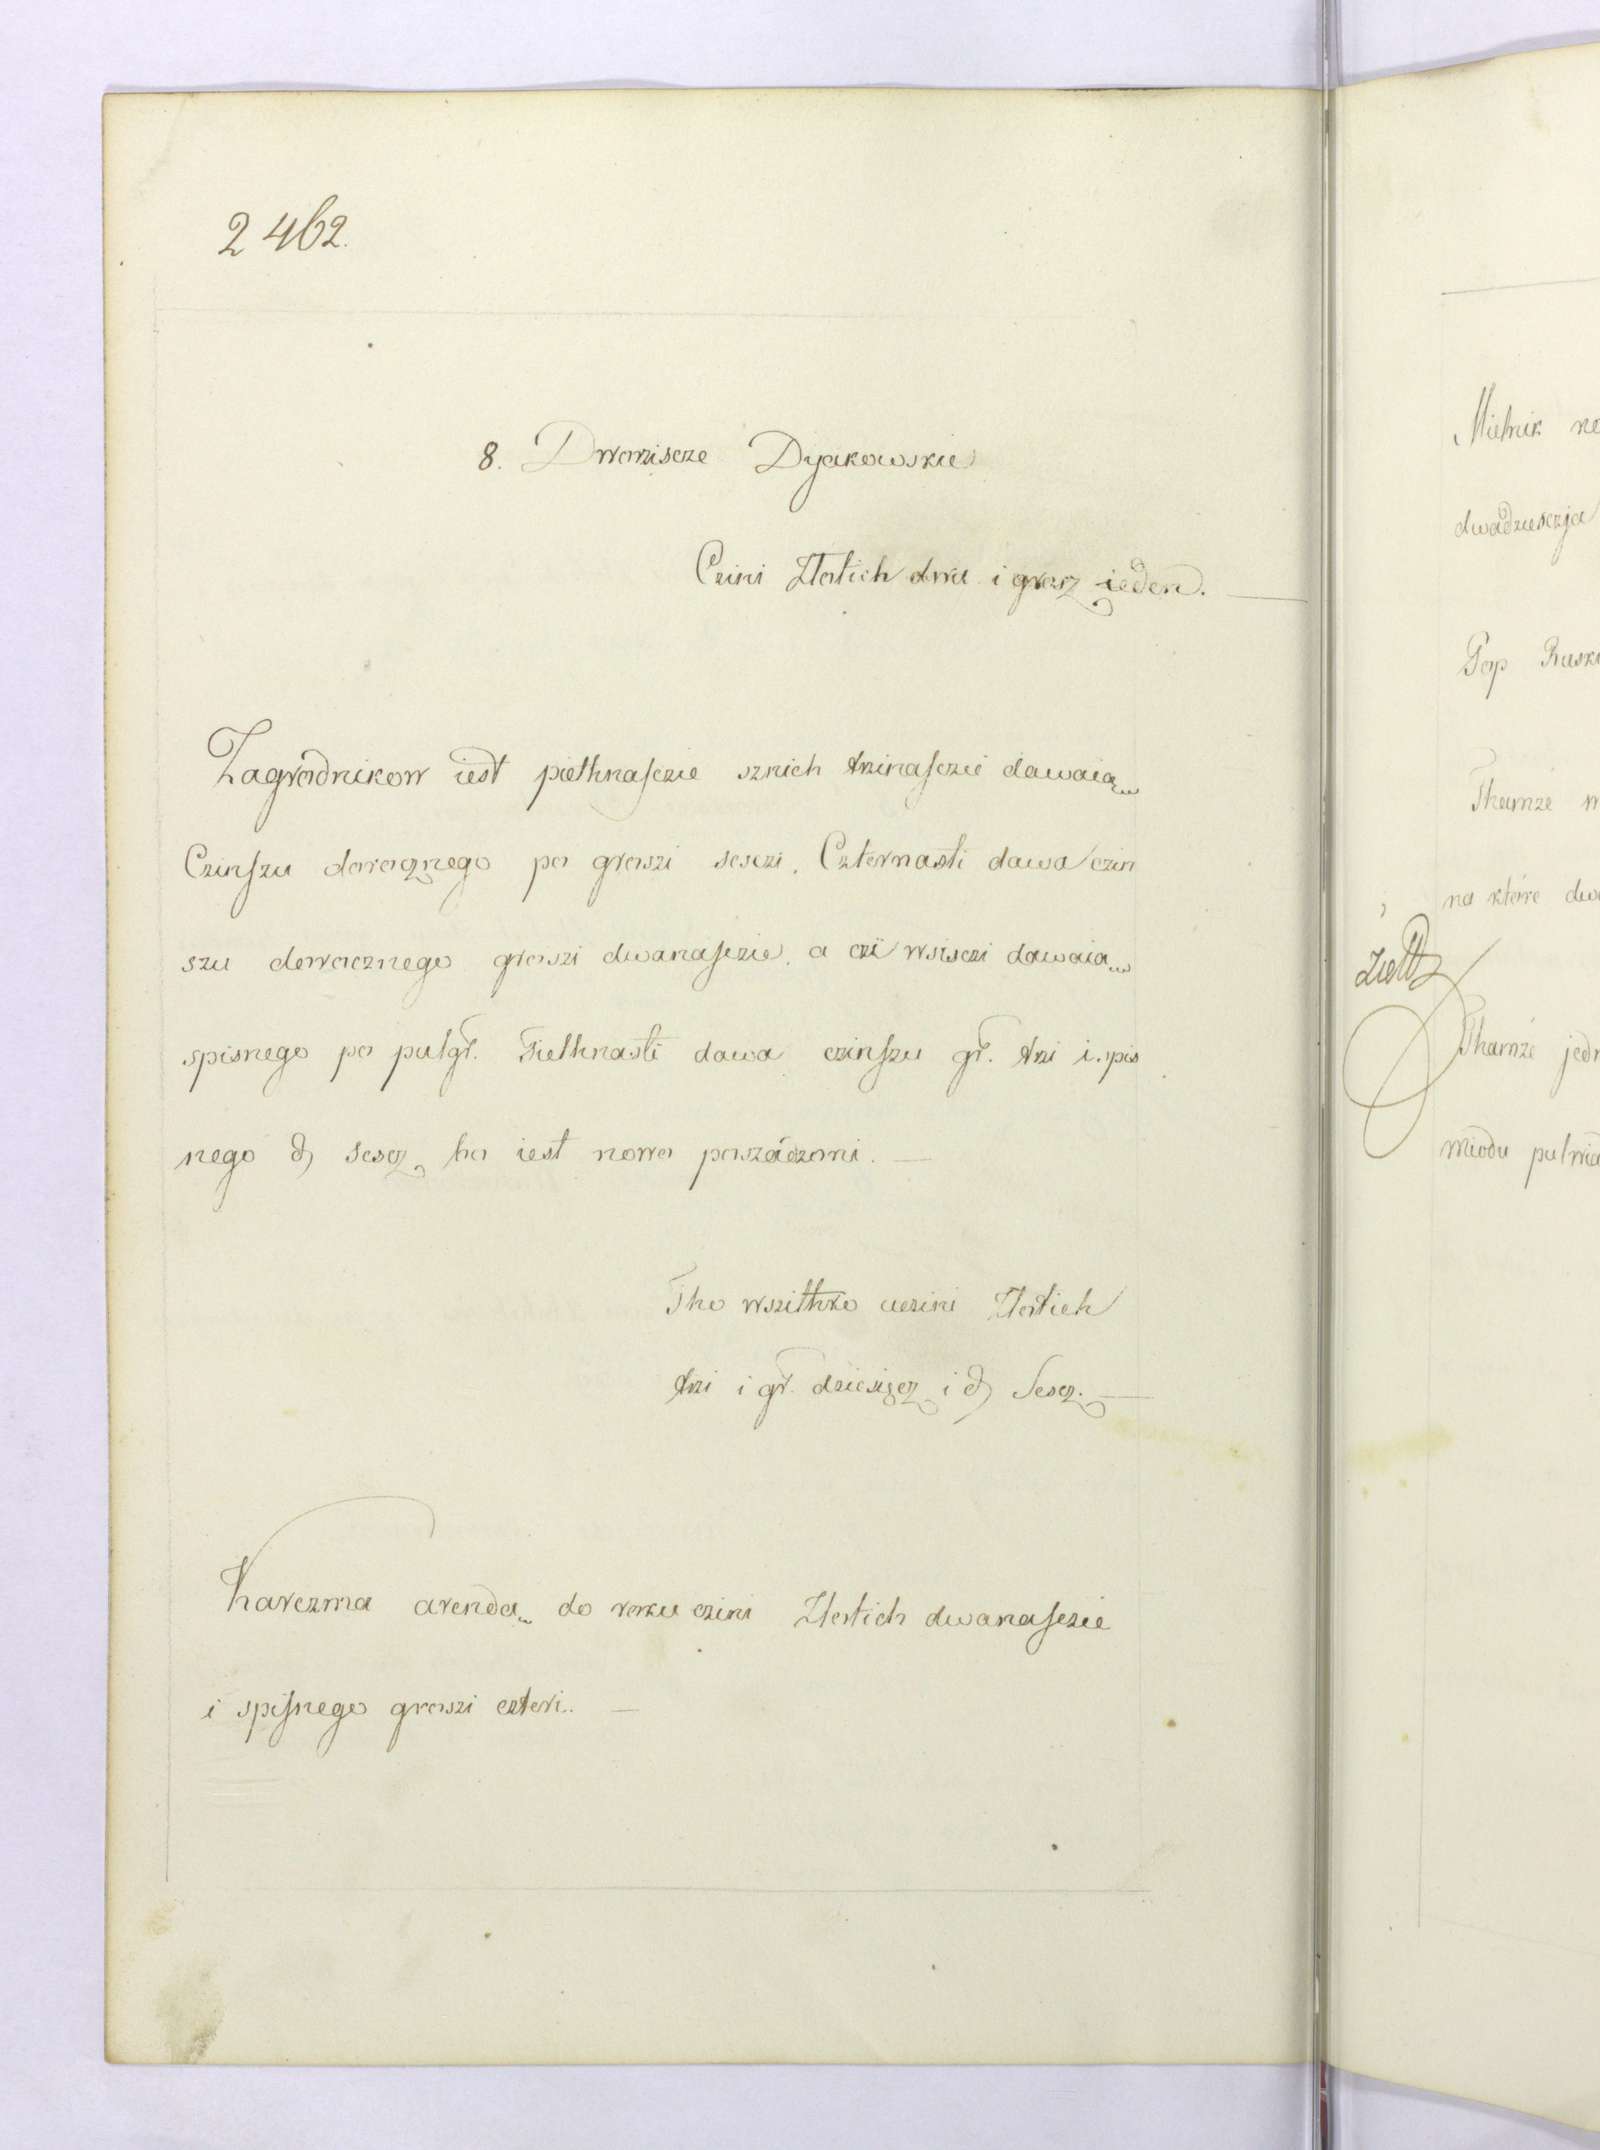 2462.
8. Dworziscze Dyakowskie
Czini Złotich dwa i grosz ieden.
Zagrodnikow iest piethnasczie sznich trzinasczie dawaią
Czinszu dorocznego po groszi sesczi. Czternasti dawa czin
szu dorocznego groszi dwanasczie. a czi wsisczi dawaia
spisnego po pułgr. Piethnasti dawa czinszu gr. trzi i pis
nego d) sescz bo iest nowo posadzoni.
Tho wszithko uczini Złotich
trzi i gr. dziesięcz i d) Sescz.
Karczma arendą do roku czini Złotich dwanasczie
i spisnego groszi czteri.
Mielnik
dwadzieszcia
Pop Ruski
Thamże
na które
Thamże
miodu